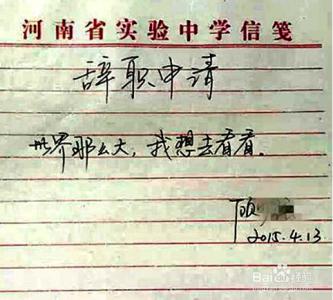 河南省实验中学信笺
辞职申请
世界那么大，我想去看看。
顾
2015.4.13
Baidu经验